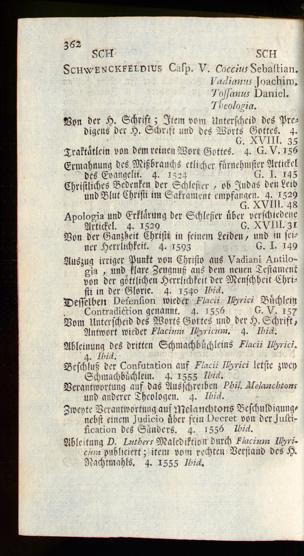 362
SCH SCH
SCHWENCKFELDIUS Casp. V. Coccius Sebastian.
Vadianus Joachim.
Tossanus Daniel.
Theologia.
Von der H. Schrift; Item vom Unterscheid des Pre-
digens der H. Schrift und des Worts Gottes. 4.
G. XVIII. 35
Traktätlein von dem reinen Wort Gottes. 4. G. V. 156
Ermahnung des Mißbrauchs etlicher fürnehmster Artickel
des Evangelii. 4. 1524 G. I. 145
Christliches Bedenken der Schlesier, ob Judas den Leib
und Blut Christi im Sakrament empfangen. 4. 1529
G. XVIII. 48
Apologia und Erklärung der Schlesier über verschiedene
Artickel. 4. 1529 G. XVIII. 31
Von der Ganzheit Christi in seinem Leiden, und in sei-
ner Herrlichkeit. 4. 1593 G. I. 149
Auszug irriger Punkt von Christo aus Vadiani Antilo-
gia, und klare Zeugnuß aus dem neuen Testament
von der göttlichen Herrlichkeit der Menschheit Chri-
sti in der Glorie. 4. 1540 Ibid.
Desselben Defension wieder Flacii Illyrici Büchlein
Contradiction genannt. 4. 1556 G. V. 157
Vom Unterscheid des Worts Gottes und der H. Schrift,
Antwort wieder Flacium Illyricum. 4. Ibid.
Ableinung des dritten Schmachbüchleins Flacii Illyrici.
4. Ibid.
Beschluß der Confutation auf Flacii Illyrici letste zwey
Schmachbüchlein. 4. 1555 Ibid.
Verantwortung auf das Ausschreiben Phil. Melanchtons
und anderer Theologen. 4. Ibid.
Zweyte Verantwortung auf Melanchtons Beschuldigung,
nebst einem Judicio über sein Decret von der Justi-
fication des Sünders. 4. 1556 Ibid.
Ableitung D. Luthers Malediktion durch Flacium Illyri-
cum publiciert; item vom rechten Verstand des H.
Nachtmahls. 4. 1555 Ibid.